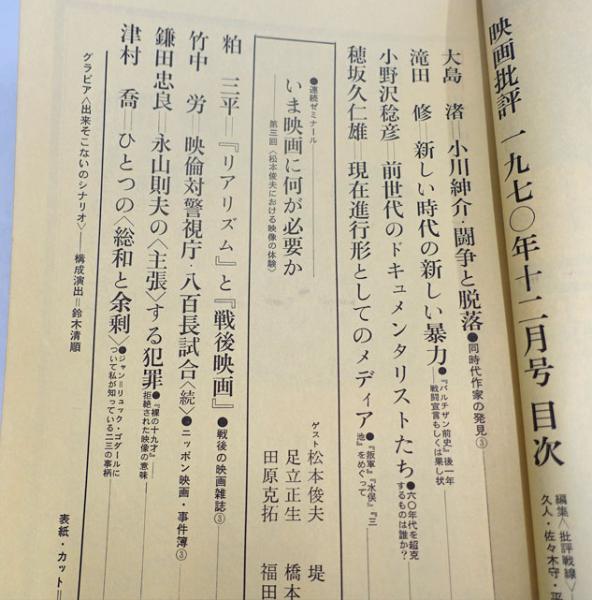 映画批評 一九七〇年十二月号 目次
編集〈批評戦線〉
久人・佐々木守・平
大島 渚＝小川紳介・闘争と脱落●同時代作家の発見③
滝田 修＝新しい時代の新しい暴力●『パルチザン前史』後一年
――戦闘宣言もしくは果し状
小野沢稔彦 前世代のドキュメンタリストたち●六〇年代を超克
するものは誰か?
穂坂久仁雄 現在進行形としてのメディア●『叛軍』『水俣』『三
池』をめぐって
●連続ゼミナール
いま映画に何が必要か
第三回〈松本俊夫における映像の体験〉
ゲスト 松本俊夫 堤
足立正生 橋本
田原克拓 福田
粕 三平＝『リアリズム』と『戦後映画』●戦後の映画雑誌③
竹中 労 映倫対警視庁・八百長試合〈続〉●ニッポン映画・事件簿③
鎌田忠良――永山則夫の〈主張〉する犯罪●『裸の十九才』――
拒絶された映像の意味
津村 喬――ひとつの〈総和と余剰〉●ジャン＝リュック・ゴダールに
ついて私が知っている二三の事柄
グラビア〈出来そこないのシナリオ〉――構成演出＝鈴木清順
表紙・カット＝